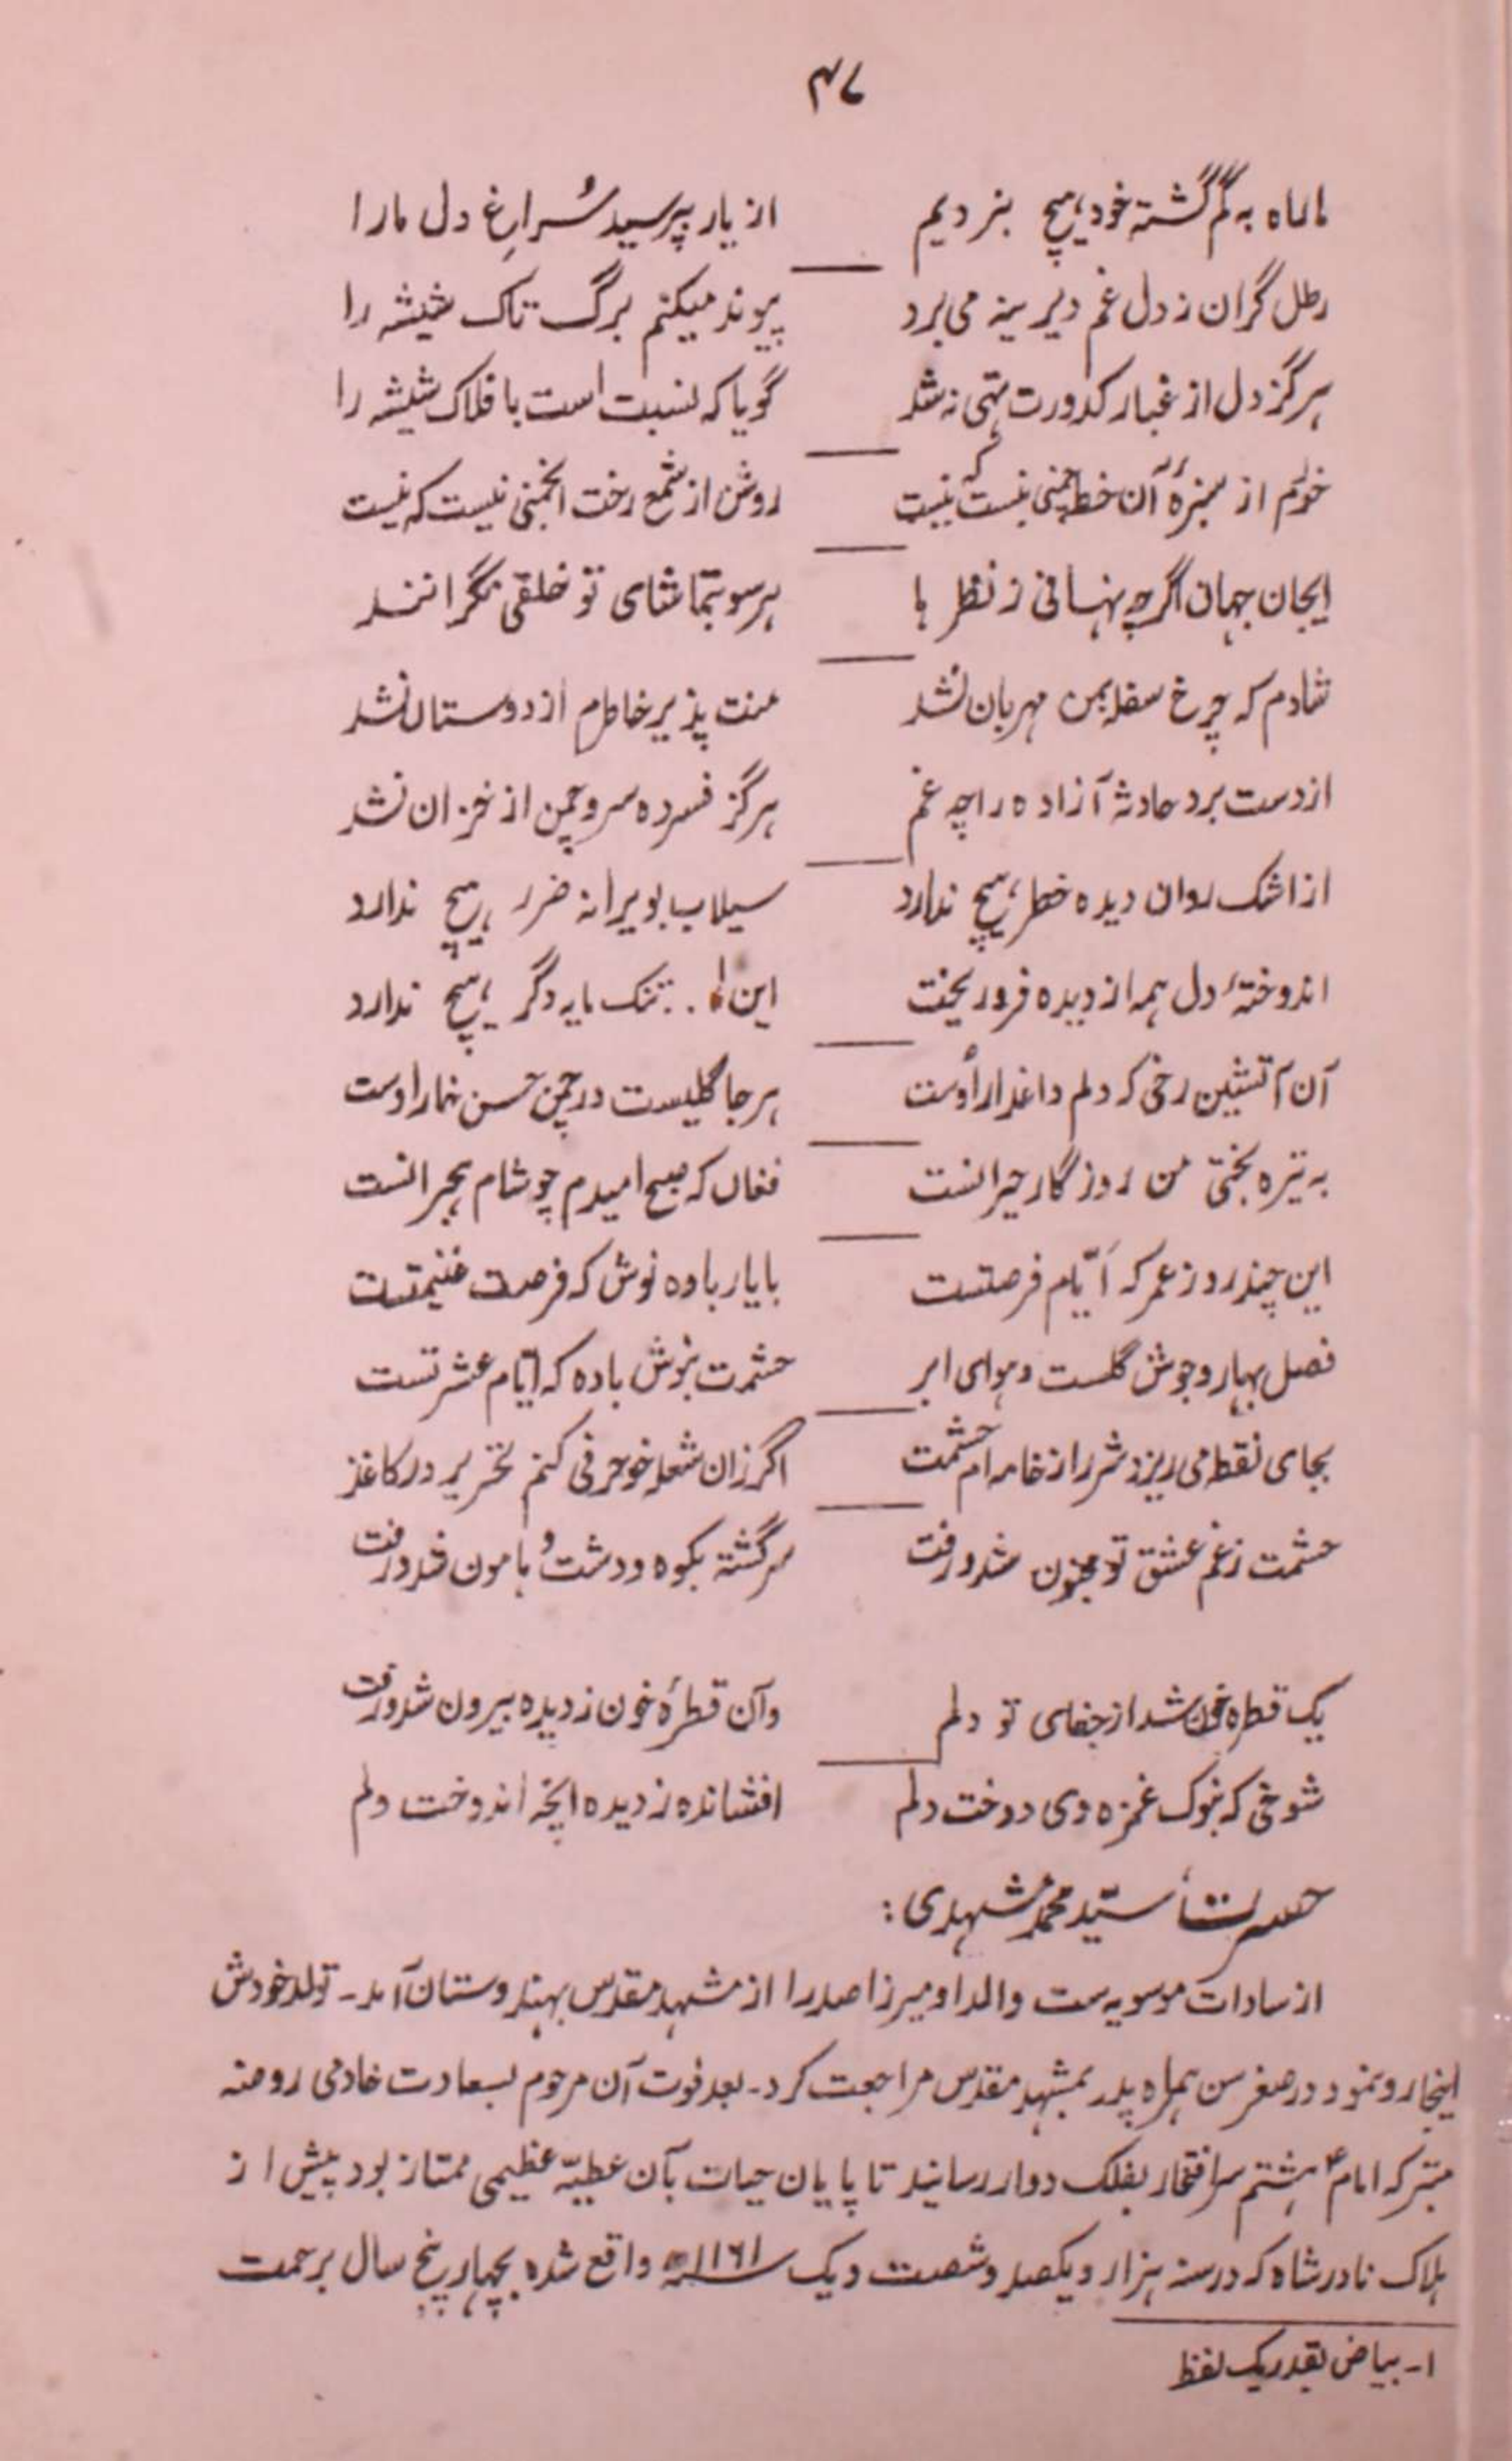 ۴۷
ما راه به گم گشته خود هیچ بنردیم از یار بپرسید سُراغِ دل ما را
رطل گران ز دل غم دیرینه می برد پیوند میکنم برگ تاک شیشه را
ہرگز دل از غبار کدورت تہی نہ شد گویا که نسبت است با فلاک شیشه را
خرّم از سبزهٔ آن خط چمنی نیست که نیست روشن از شمع رخت انجمنی نیست که نیست
ایجان جهان اگرچه پنهانی ز نظر ہا ہر سو بتماشای تو خلقی نگرانند
شادم که چرخ سفله بمن مهربان نشد منت پذیر خاطرم از دوستان نشد
از دست برد حادثه آزاده را چه غم ہرگز فسرده سرو چمن از خزان نشد
از اشک روان دیده خطر ہیچ ندارد سیلاب بویرانه ضرر ہیچ ندارد
اندوختهٔ دل ہمه از دیده فرو ریخت این ۱... تنک مایه دگر ہیچ ندارد
آن آتشین رخی که دلم داغدار اوست ہر جا گلیست در چمن حسن خار اوست
به تیره بختی من روزگار حیرانست فغان که صبح امیدم چو شام ہجرانست
این چند روز عمر که ایّام فرصتست با یار باده نوش که فرصت غنیمتست
فصل بهار و جوش گلست و ہوای ابر حشمت بنوش باده که ایّام عشرتست
بجای نقطه می ریزد شرر از خامه ام حشمت اگر زان شعله خو حرفی کنم تحریر در کاغذ
حشمت ز غم عشق تو مجنون شد و رفت سرگشته بکوه و دشت و ہامون شد و رفت
یک قطره خون شد از جفای تو دلم وآن قطرهٔ خون ز دیده بیرون شد و رفت
شوخی که بنوک غمزه دی دوخت دلم افشانده ز دیده انچه اندوخت دلم
حسرت، سیّد محمد مشہدی :
از سادات موسویہ ست والد او میرزا صدرا از مشہد مقدس بہندوستان آمد۔ تولد خودش
اینجا رو نمود در صغر سن ہمراہ پدر بمشہد مقدس مراجعت کرد۔ بعد فوت آن مرحوم بسعادت خادمی روضہ
متبرکہ امام ؑ ہشتم سر افتخار بفلک دوار رسانید تا پایان حیات بآن عطیّہ عظیمی ممتاز بود پیش از
ہلاک نادر شاه که در سنه ہزار و یکصد و شصت و یک سنه ۱۱۶۱ھ واقع شده بچہار پنج سال برحمت
۱۔ بیاض بقدر یک لفظ